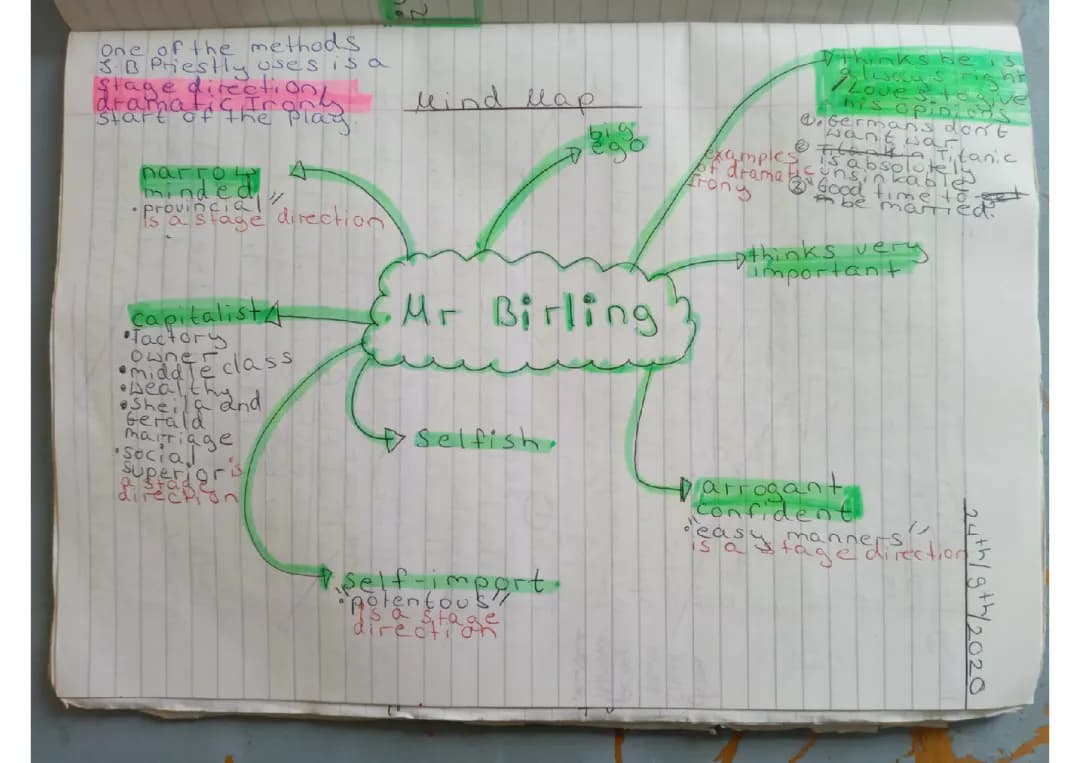 One of the methods
J B Priestly uses is a
stage direction/
dramatic Irony
start of the play.
Mind Map
big
ego
thinks he is
always right
/Loves to give
his opinions
①. Germans don't
want war
② Titanic
is absolutely
unsinkable
③ Good time to
be married.
examples
of dramatic
Irony
narrow
minded
• provincial"
is a stage direction
thinks very
important
Mr Birling
capitalist
• factory
owner
• middle class
• wealthy
• Sheila and
Gerald
marriage
• social
superior is
a stage
direction
selfish.
arrogant
confident
• "easy manners"
is a stage direction
self-import.
• "potentous"
is a stage
direction
24th/9th/2020